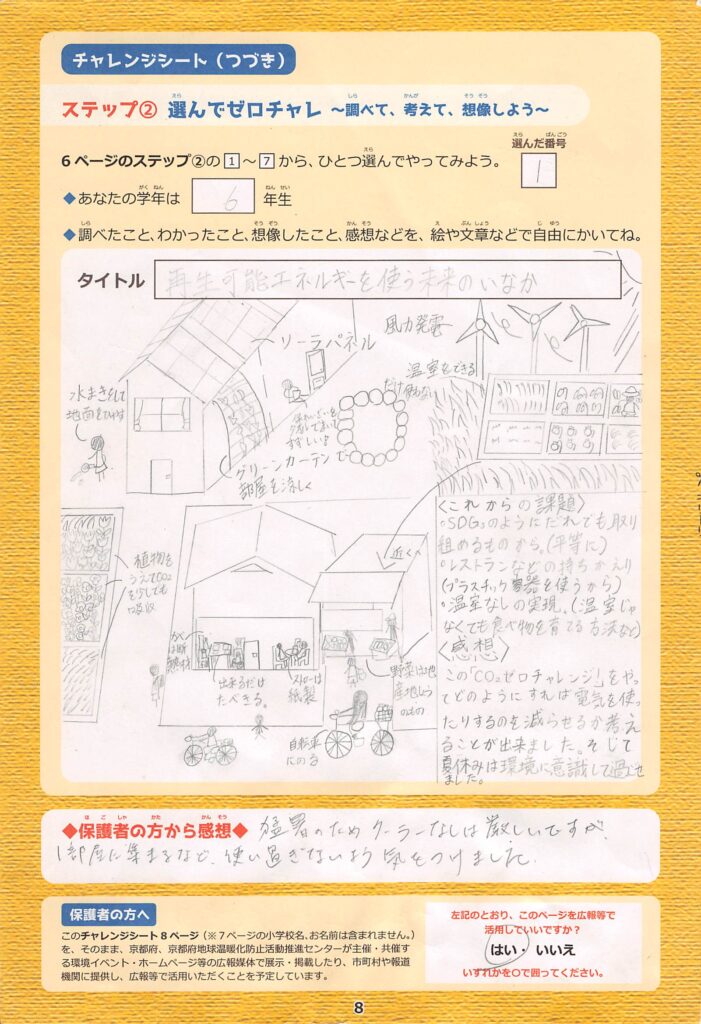 チャレンジシート（つづき）
ステップ② 選んでゼロチャレ ～調べて、考えて、想像しよう～
6ページのステップ②の 1 ～ 7 から、ひとつ選んでやってみよう。
選んだ番号
1
◆あなたの学年は 6 年生
◆調べたこと、わかったこと、想像したこと、感想などを、絵や文章などで自由にかいてね。
タイトル 再生可能エネルギーを使う未来のいなか
ソーラパネル
風力発電
水まきをして
地面をひやす
温室をできる
だけ使わない
すずしいよ
グリーンカーテンで
部屋を涼しく
植物を
うえてCO₂
を少しでも
吸収
近くへ
出来るだけ
たべきる。
ストローは
紙製
野菜は地
産地しょう
のもの
自転車
にのる
〈これからの課題〉
・SDGsのようにだれでも取り
組めるものから。(平等に)
・レストランなどの持ちかえり
(プラスチック容器を使うから)
・温室なしの実現、(温室じゃ
なくても食べ物を育てる方法など)
〈感想〉
この「CO₂ゼロチャレンジ」をやっ
てどのようにすれば電気を使っ
たりするのを減らせるか考え
ることが出来ました。そして
夏休みは環境に意識して過ごせ
ました。
◆保護者の方から感想◆ 猛暑のためクーラーなしは厳しいですが、
1部屋に集まるなど、使い過ぎないよう気をつけました。
保護者の方へ
このチャレンジシート8ページ（※7ページの小学校名、お名前は含まれません。）
を、そのまま、京都府、京都府地球温暖化防止活動推進センターが主催・共催す
る環境イベント・ホームページ等の広報媒体で展示・掲載したり、市町村や報道
機関に提供し、広報等で活用いただくことを予定しています。
左記のとおり、このページを広報等で
活用していいですか？
はい・ いいえ
いずれかを〇で囲ってください。
8